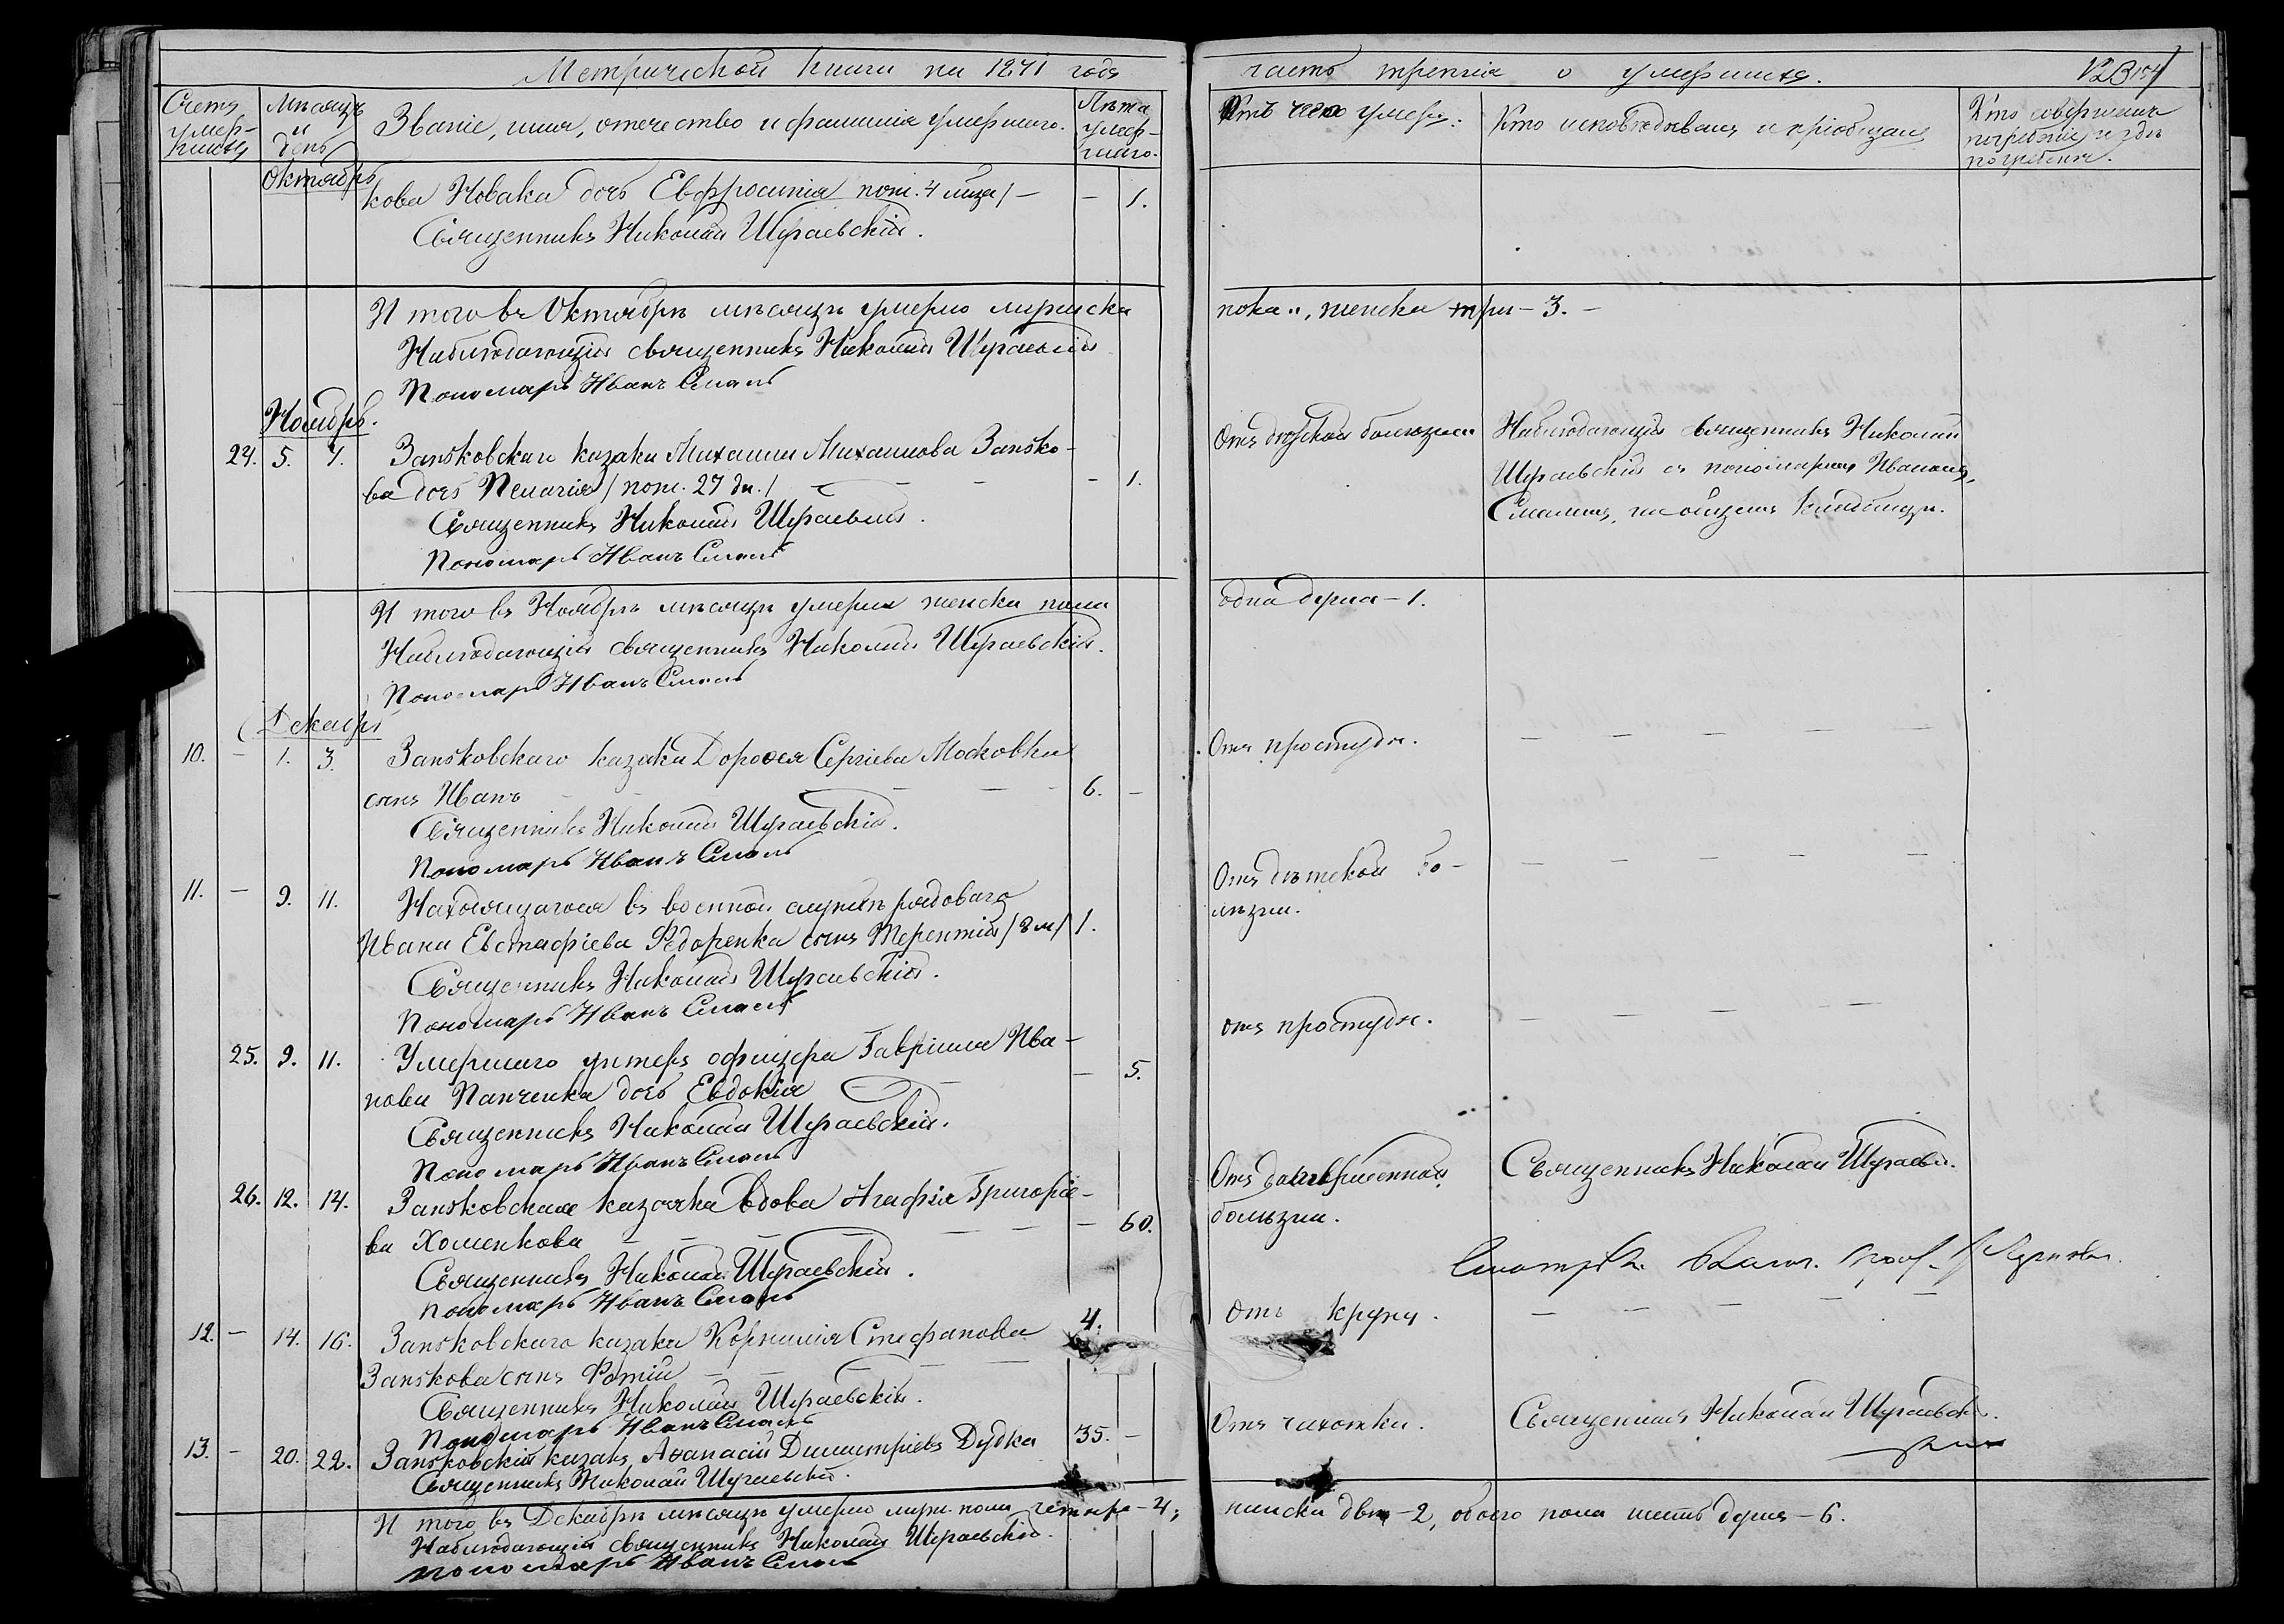 Метрической книги на 1871 годъ
часть третія о умершихъ.
Счетъ умер-
шихъ
Мѣсяцъ
и
день
Званіе, имя, отечество и фамилія умершаго.
Лѣта
умер-
шаго.
Отъ чего умеръ:
Кто исповѣдывалъ и пріобщалъ
Кто совершалъ
погребеніе и гдѣ
погребенъ.
Октябрь
кова Новака дочь Евфросинія пол. 4 мѣся/ — — 1.
Священникъ Николай Шираевскій.
И того въ Октябрѣ мѣсяцѣ умерло мужеска
пола ", женска три — 3. —
Наблюдающій священникъ Николай Шираевскій
Пономарь Иванъ Смаль
Ноябрь.
24. 5. 7. Заньковскаго казака Михаила Михаилова Занько-
ва дочь Пелагія / пол. 27 дн. / — — — — 1.
Священникъ Николай Шираевскій.
Пономарь Иванъ Смаль
Отъ дѣтской болѣзни
Наблюдающій священникъ Николай
Шираевскій съ пономаремъ Иваномъ
Смалемъ, на общемъ кладбищѣ.
И того въ Ноябрѣ мѣсяцѣ умерла женска пола
одна душа — 1.
Наблюдающій священникъ Николай Шираевскій.
Пономарь Иванъ Смаль
Декабрь
10. — 1. 3. Заньковскаго казака Дороѳея Сергіева Московки
сынъ Иванъ — — — — 6. —
Священникъ Николай Шираевскій.
Пономарь Иванъ Смаль
Отъ простуды. — — — — —
11. — 9. 11. Находящагося въ военной службѣ рядоваго
Ивана Евстафіева Ѳедоренка сынъ Терентій / 8 м / 1.
Священникъ Николай Шираевскій.
Пономарь Иванъ Смаль
Отъ дѣтской бо- — — — — —
лѣзни.
25. 9. 11. Умершаго унтеръ офицера Гавріила Ива-
нова Панченка дочь Евдокія — — 5.
Священникъ Николай Шираевскій.
Пономарь Иванъ Смаль
отъ простуды. — — — — —
26. 12. 14. Заньковская казачка вдова Агафія Григоріе-
ва Хоменкова — — — — — — 60.
Священникъ Николай Шираевскій.
Пономарь Иванъ Смаль
Отъ
болѣзни.
Священникъ Николай Шираевс.
12. — 14. 16. Заньковскаго казака Корнилія Стефанова 4.
Занькова сынъ Фотій — — — —
Священникъ Николай Шираевскій.
Пономарь Иванъ Смаль
Отъ крупу. — — — — —
13. — 20. 22. Заньковскій казакъ Аѳанасій Димитріевъ Дудка 35. —
Священникъ Николай Шираевскій.
Отъ чахотки.
Священникъ Николай Шираевск.
И того въ Декабрѣ мѣсяцѣ умерло муж. пола четыре — 4;
женска двѣ — 2, обоего пола шесть душъ — 6.
Наблюдающій священникъ Николай Шираевскій.
пономарь Иванъ Смаль